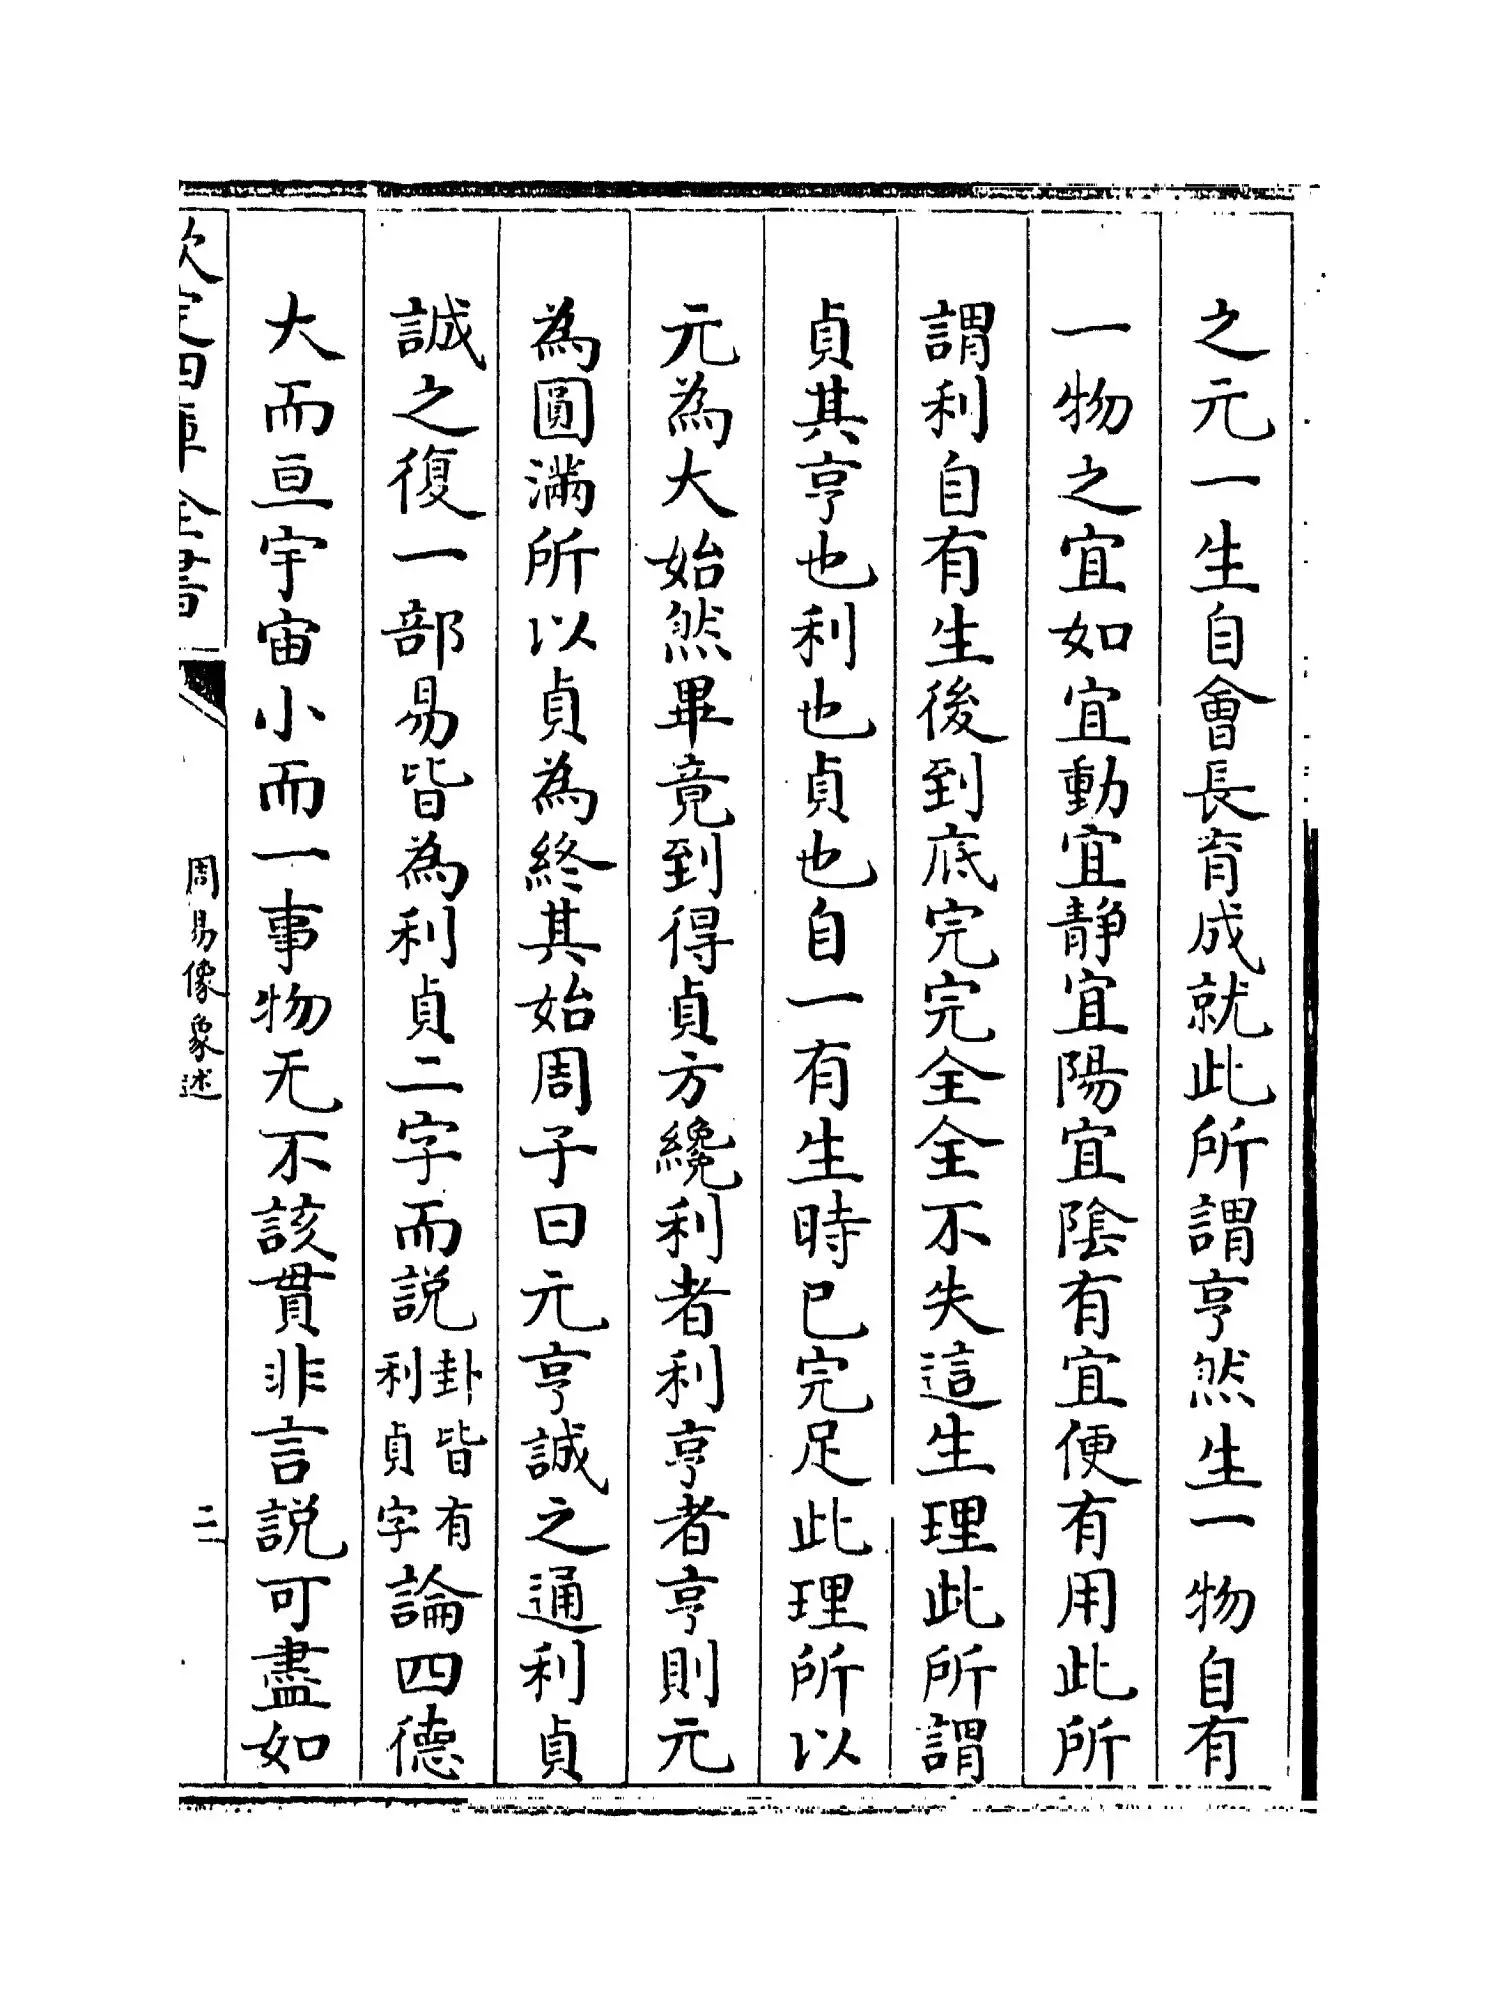 之元一生自會長育成就此所謂亨然生一物自有
一物之宜如宜動宜靜宜陽宜陰有宜便有用此所
謂利自有生後到底完完全全不失這生理此所謂
貞其亨也利也貞也自一有生時已完足此理所以
元為大始然畢竟到得貞方纔利者利亨者亨則元
為圓滿所以貞為終其始周子曰元亨誠之通利貞
誠之復一部易皆為利貞二字而説卦皆有利貞字論四德
大而亘宇宙小而一事物无不該貫非言説可盡如
欽定四庫全書
周易像象述
二